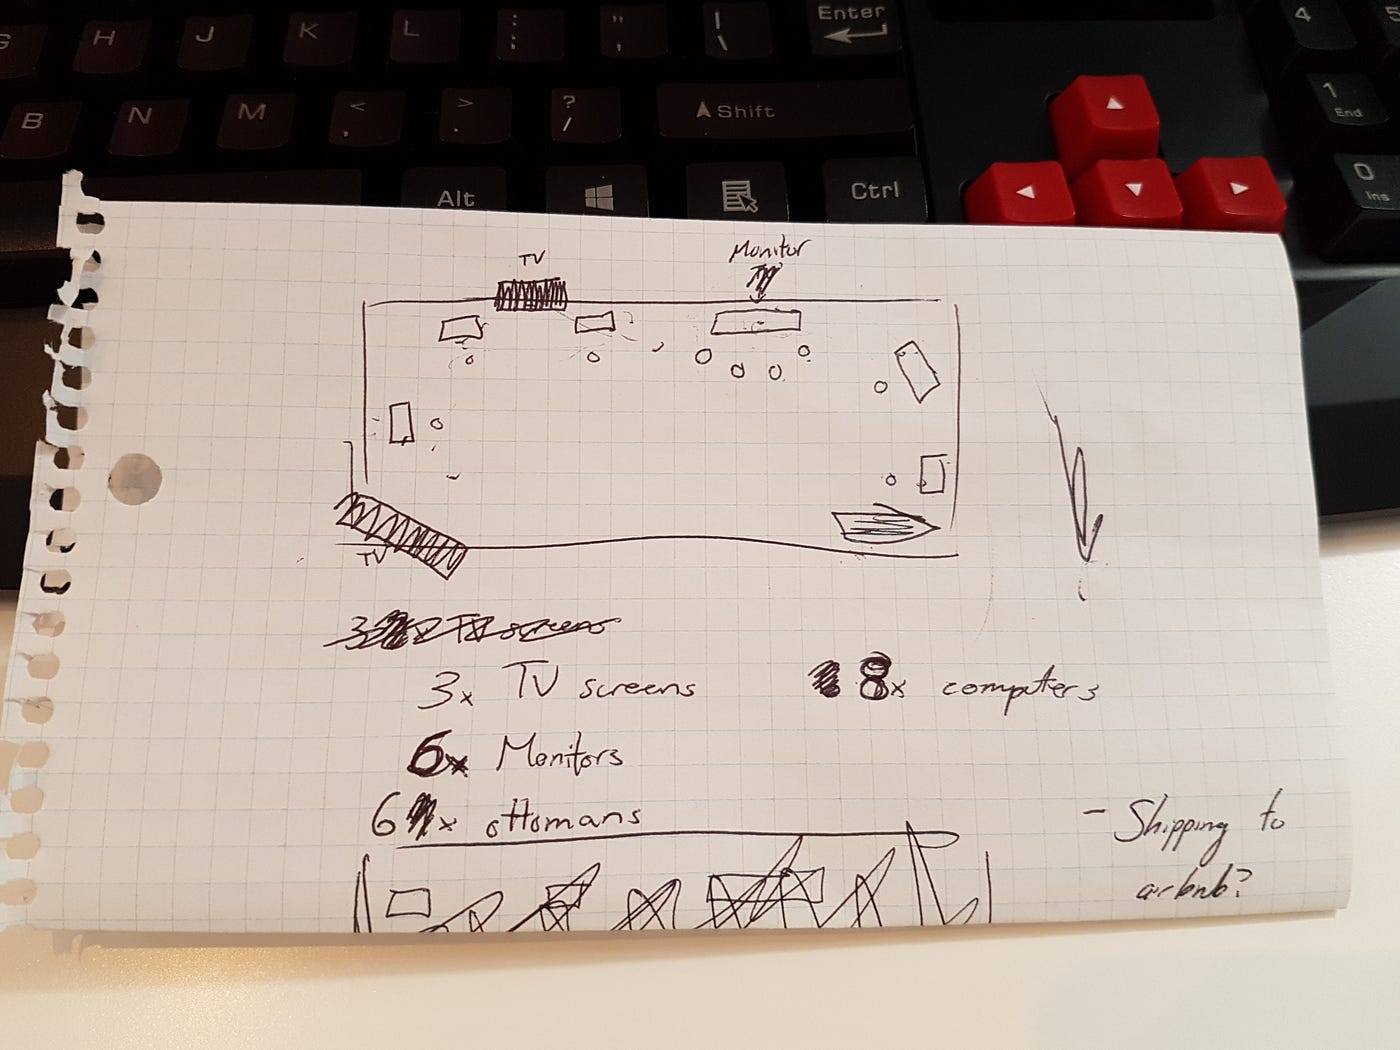 G H J K L : ; " ' | \ Enter 4 5
B N M < , > . ? / Shift 1 End
Alt Ctrl 0 Ins
TV Monitor
TV
3x TV screens 8x computers
6x Monitors
6x ottomans
- Shipping to
airbnb?